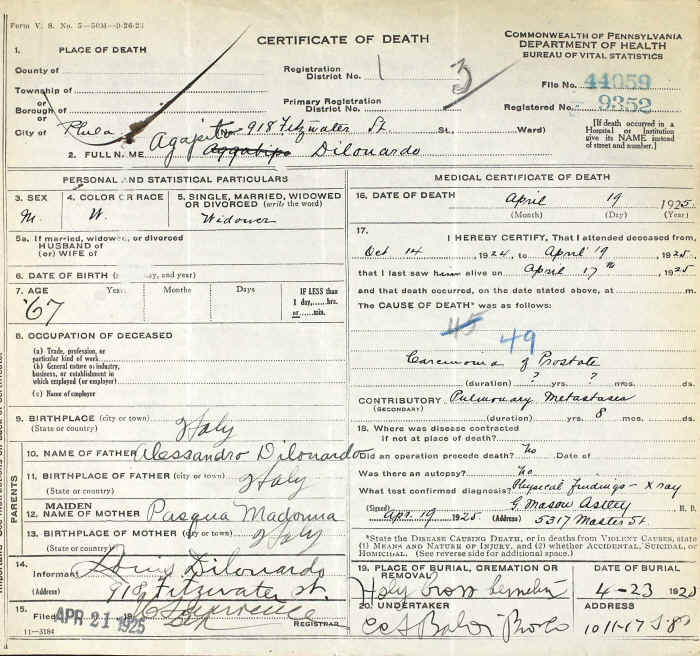 Form V. S. No. 5—50M—9-26-23
CERTIFICATE OF DEATH
COMMONWEALTH OF PENNSYLVANIA
DEPARTMENT OF HEALTH
BUREAU OF VITAL STATISTICS
1. PLACE OF DEATH
County of
Registration District No. 1
3
File No. 44059
Township of
or
Borough of
or
Primary Registration District No.
Registered No. 9352
City of Phila No. 918 Fitzwater St St. Ward)
[If death occurred in a Hospital or Institution give its NAME instead of street and number.]
2. FULL NAME Agapito Dilonardo
PERSONAL AND STATISTICAL PARTICULARS
3. SEX
M.
4. COLOR OR RACE
W.
5. SINGLE, MARRIED, WIDOWED OR DIVORCED (write the word)
Widower
5a. If married, widowed, or divorced
HUSBAND of
(or) WIFE of
6. DATE OF BIRTH
7. AGE Years Months Days IF LESS than 1 day,....hrs. or....min.
67
8. OCCUPATION OF DECEASED
(a) Trade, profession, or particular kind of work
(b) General nature of industry, business, or establishment in which employed (or employer)
(c) Name of employer
9. BIRTHPLACE (city or town)
(State or country) Italy
PARENTS
10. NAME OF FATHER Alessandro Dilonardo
11. BIRTHPLACE OF FATHER (city or town)
(State or country) Italy
12. MAIDEN NAME OF MOTHER Pasqua Madonna
13. BIRTHPLACE OF MOTHER (city or town)
(State or country) Italy
14.
Informant Dilonardo
918 Fitzwater St.
15.
Filed APR 21 1925
REGISTRAR
11-3184
MEDICAL CERTIFICATE OF DEATH
16. DATE OF DEATH April 19 1925
(Month) (Day) (Year)
17. I HEREBY CERTIFY, That I attended deceased from
Oct 14, 1924, to April 19, 1925
that I last saw him alive on April 17th, 1925
and that death occurred, on the date stated above, at m.
The CAUSE OF DEATH* was as follows:
45 49
Carcinoma of Prostate
(duration) ? yrs. ? mos. ds.
CONTRIBUTORY Pulmonary Metastases
(SECONDARY)
(duration) yrs. 8 mos. ds.
18. Where was disease contracted
if not at place of death?
Did an operation precede death? No Date of
Was there an autopsy? No
What test confirmed diagnosis? Physical Findings - X ray
(Signed) G. Mason M. D.
Apr. 19 1925 (Address) 5317 Master St.
*State the DISEASE CAUSING DEATH, or in deaths from VIOLENT CAUSES, state (1) MEANS AND NATURE OF INJURY, and (2) whether ACCIDENTAL, SUICIDAL, or HOMICIDAL. (See reverse side for additional space.)
19. PLACE OF BURIAL, CREMATION OR REMOVAL
Holy Cross
DATE OF BURIAL
4-23 1925
20. UNDERTAKER
Baldi Bros
ADDRESS
1011-17 S. 8